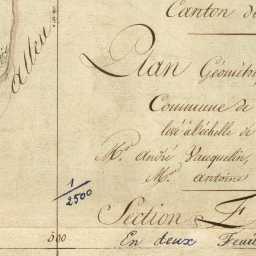 Canton de
Plan Géométri
Commune de
levé à l'échelle de
Mr. André Vauquelin,
Mr. Antoine
Section F
En deux Feuil
Alleu
1/2500
500